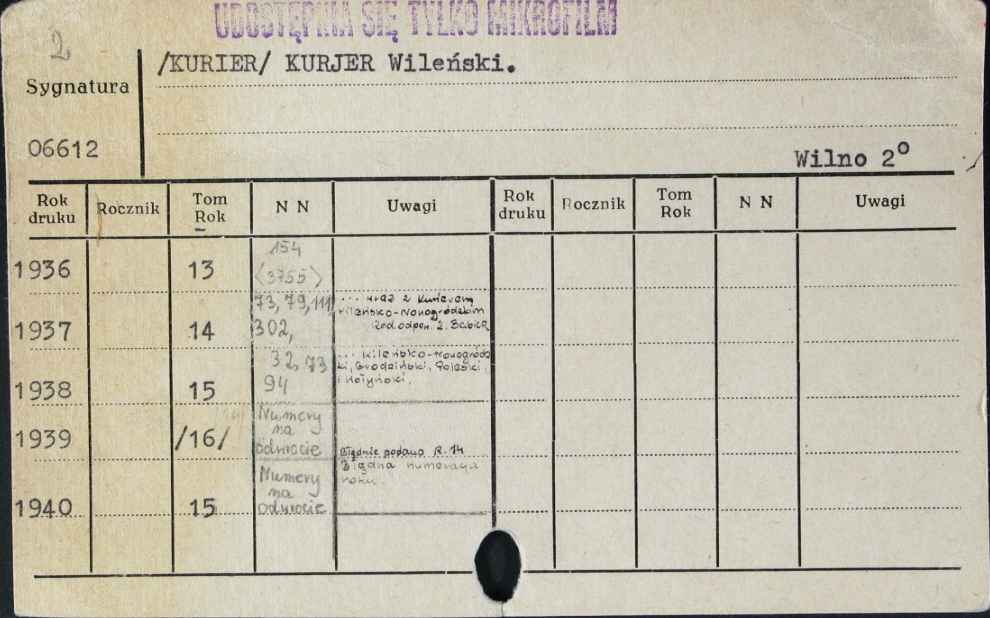 UDOSTĘPNIA SIĘ TYLKO MIKROFILM
2
/KURIER/ KURJER Wileński.
Sygnatura
06612
Wilno 2°
Rok druku Rocznik Tom Rok N N Uwagi Rok druku Rocznik Tom Rok N N Uwagi
154
1936 13 <3755>
73, 79, 111 ... wraz z Kurierem
Wileńsko-Nowogródzkim
1937 14 302, Red. odpow. Z.
32, 73 ... Wileńsko-Nowogródz
ki, Grodzieński, Poleski
1938 15 94 i Wołyński.
Numery
na
1939 /16/ odwrocie Błędnie podano R. 14
Numery Błędna numeracja
na roku.
1940 15 odwrocie